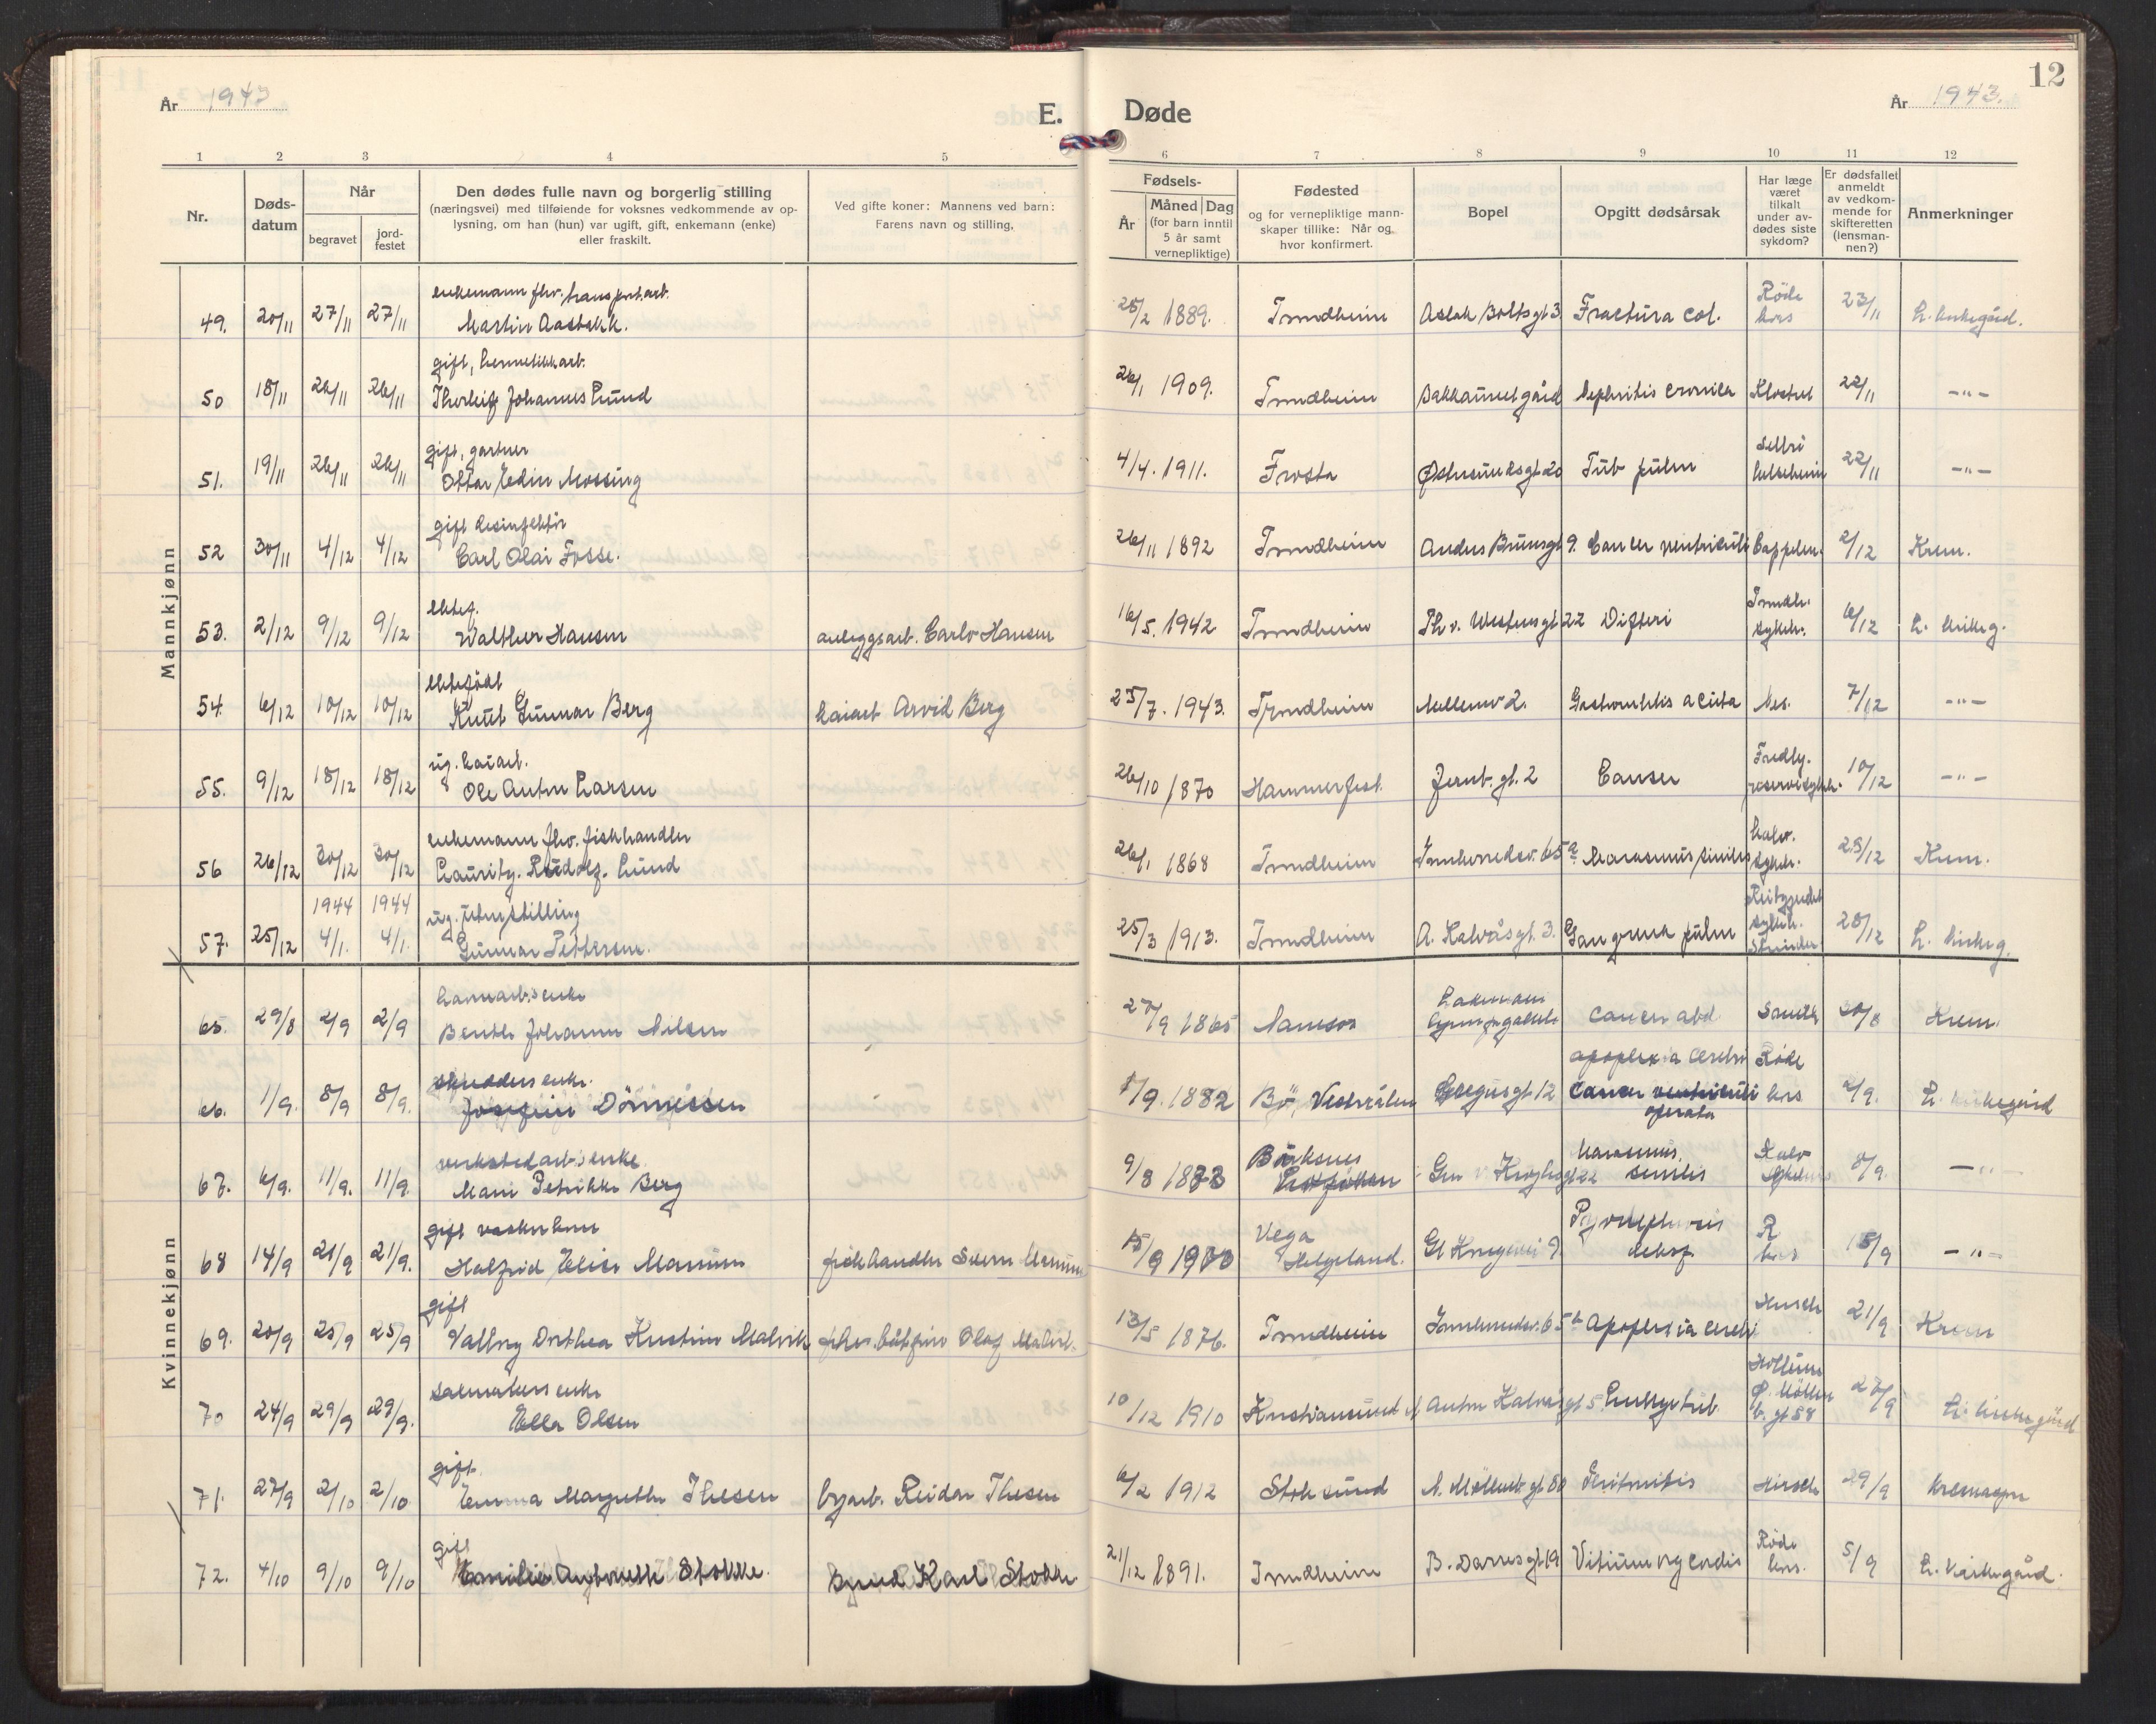 År 1943
E.
Døde
År 1943.
12
1 2 3 4 5 6 7 8 9 10 11 12
Nr.
Døds-
datum
Når
begravet
jord-
festet
Den dødes fulle navn og borgerlig stilling
(næringsvei) med tilføiende for voksnes vedkommende av op-
lysning, om han (hun) var ugift, gift, enkemann (enke)
eller fraskilt.
Ved gifte koner: Mannens ved barn:
Farens navn og stilling.
Fødsels-
År
Måned Dag
(for barn inntil
5 år samt
vernepliktige)
Fødested
og for vernepliktige mann-
skaper tillike: Når og
hvor konfirmert.
Bopel
Opgitt dødsårsak
Har læge
været
tilkalt
under av-
dødes siste
sykdom?
Er dødsfallet
anmeldt
av vedkom-
mende for
skifteretten
(lensman-
nen?)
Anmerkninger
Mannkjønn
enkemann fhv. transportarb.
49. 20/11 27/11 27/11 Martin 1889. Trondheim Aslak Boltsgt 3 Fractura col. Røde kors 23/11 L. kirkegård.
gift, hermetikkarb.
50 18/11 26/11 26/11 Thorleif Johannes Lund 26/1 1909. Trondheim Bakkaunet gård Nephritis cronica Klostret 22/11 -"-
gift, gartner
51. 19/11 26/11 26/11 Ottar Edin Mossing 4/4. 1911. Frosta Østersundsgt 20 Tub pulm 22/11 -"-
gift desinfektør
52 30/11 4/12 4/12 Carl Olai Fosse. 26/11 1892 Trondheim Anders Buensgt 9. Cancer ventriculi Cappelen. 2/12 Krem.
ektef.
53. 2/12 9/12 9/12 Walther Hansen anleggsarb. Carlo Hansen 16/5. 1942 Trondheim Th. v. Westensgt 22 Difteri Trondh. sykeh. 6/12 L. kirkeg.
ektefødt
54. 6/12 10/12 10/12 Knut Gunnar Berg kaiarb Arvid Berg 25/7. 1943. Trondheim Mellomv 2. acuta 7/12 -"-
ug. kaiarb.
55. 9/12 18/12 18/12 Ole Anton Larsen 26/10 1870 Hammerfest. Jernb. gt. 2 Cancer Fredly. reservesykeh. 10/12 -"-
enkemann fhv. fiskhandler
56 26/12 30/12 30/12 Lauritz Rudolf Lund 26/1 1868 Trondheim Innherredsv. 65a Marasmus senilis kalv. sykeh. 28/12 Krem.
1944 1944 ug. uten stilling
57. 25/12 4/1. 4/1. Gunnar Pettersen. 25/3 1913. Trondheim A. Kalvåsgt. 3. Gangrena pulm Reitgjerdet sykeh. Strinda 28/12 L. kirkeg.
Kvinnekjønn
enke
65. 29/8 2/9 2/9 Johanna Nilsen 27/9 1865 Namsos Cancer abd 30/8 Krem.
skredders enke.
66. 1/9. 8/9 8/9. Josefine Dönnessen /9. 1882 Bø, Vesterålen apoplexia cerebri Cancer ventriculi operata Røde kors 2/9. L. kirkegård
verkstedarb.s enke
67. 6/9. 11/9. 11/9 Petrikke Berg 9/8 1873 Marasmus senilis Kalv sykehus 8/9. -"-
gift
68 14/9 21/9 21/9. Halfrid Elise fiskhandler 15/9 1900 Vega Helgeland. Gl Kongevei 9. R kors 18/9 -"-
gift
69. 20/9 25/9 25/9 Valborg Dorthea Kristine Malvik Olaf Malvik. 13/5 1876. Trondheim Innherredsv. 65b Apoplexia cerebri Hirsch 21/9 Krem
enke
70 24/9 29/9 29/9. Ella Olsen 10/12 1910 Kristiansund N. Anton Kalvåsgt 5. Lungetub. 27/9 L. kirkegård
gift.
71. 27/9 2/10 2/10 Emma Margrethe Thesen Reidar Thesen 6/2 1912 Stoksund Peritonitis Hirsch 29/9
gift
72. 4/10 9/10 9/10 Emilie Antonette Stokke. Karl Stokke 21/12 1891. Trondheim B. Darresgt 19 Vitium org cordis Røde kors. 5/9 L. kirkegård.